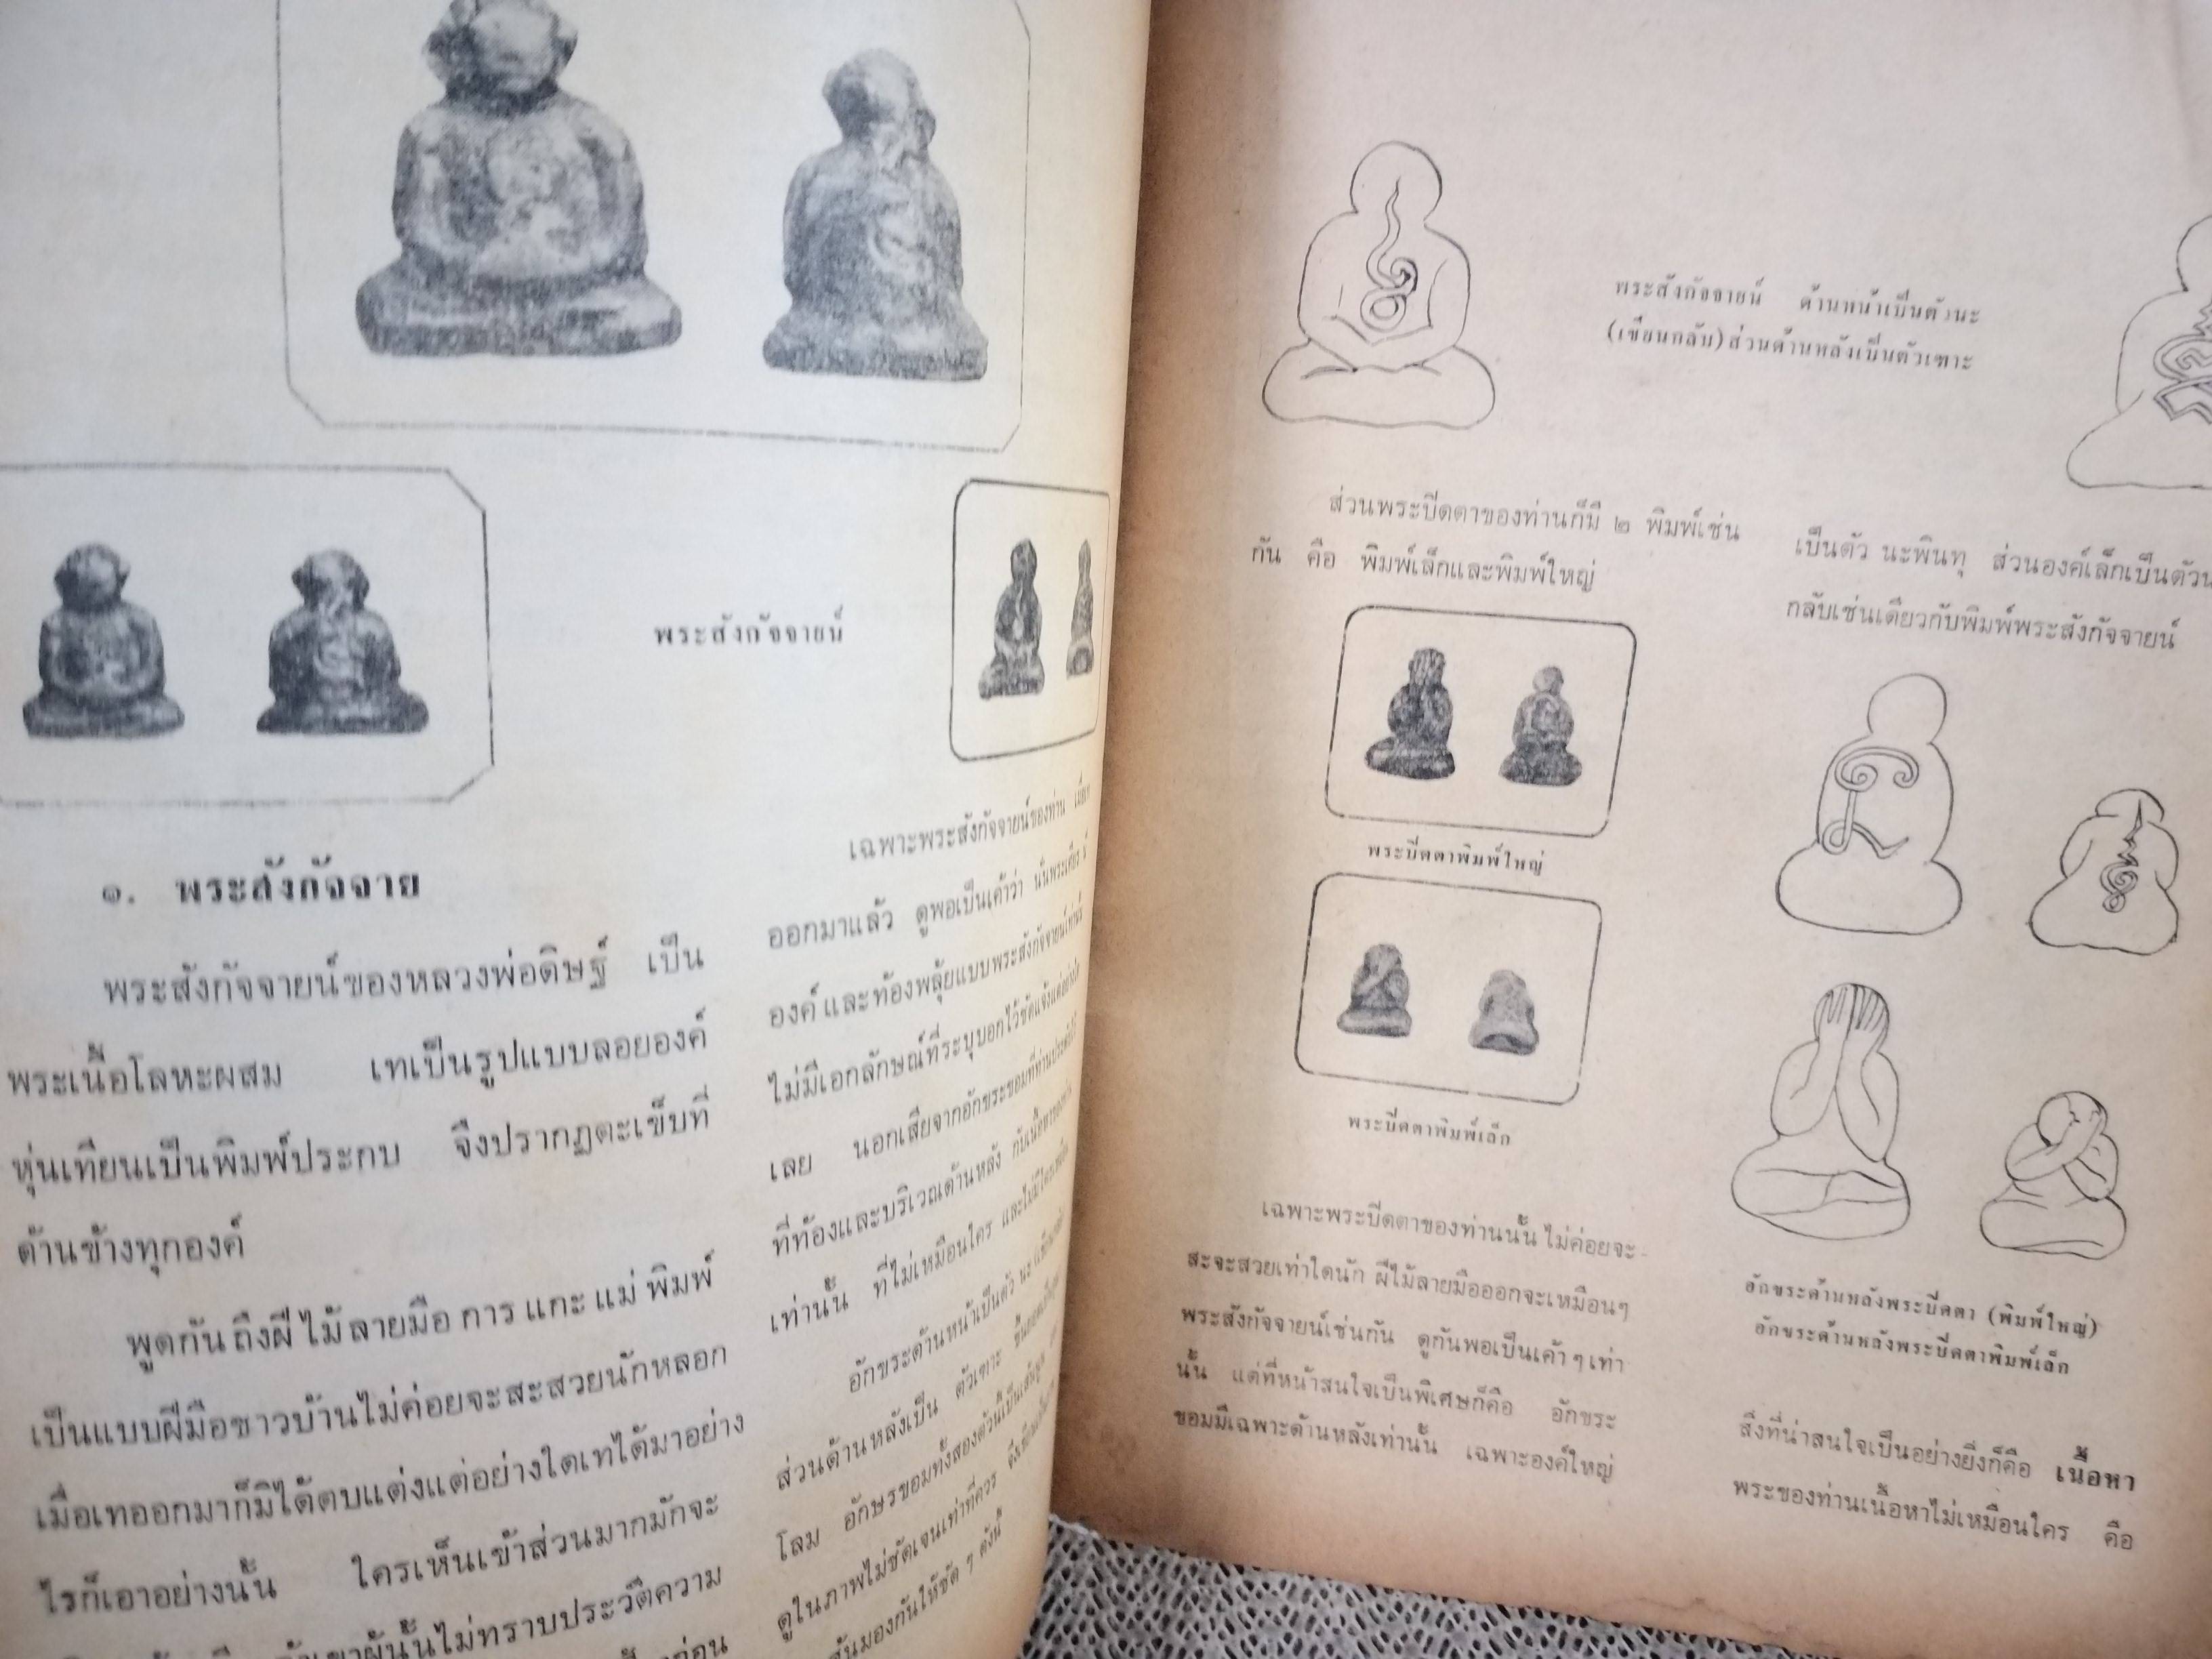 พระสังกัจจายน์
๑. พระสังกัจจาย
พระสังกัจจายน์ของหลวงพ่อดิษฐ์ เป็น
พระเนื้อโลหะผสม เทเป็นรูปแบบลอยองค์
หุ่นเทียนเป็นพิมพ์ประกบ จึงปรากฏตะเข็บที่
ด้านข้างทุกองค์
พูดกันถึงฝีไม้ลายมือการแกะแม่พิมพ์
เป็นแบบฝีมือชาวบ้านไม่ค่อยจะสะสวยนักหลอก
เมื่อเทออกมาก็มิได้ตบแต่งแต่อย่างใดเทได้มาอย่าง
ไรก็เอาอย่างนั้น ใครเห็นเข้าส่วนมากมักจะ
ผู้นั้นไม่ทราบประวัติความ
ก่อน
เฉพาะพระสังกัจจายน์ของท่าน
ออกมาแล้ว ดูพอเป็นเค้าว่า นั่นพระเศียร
องค์ และท้องพลุ้ยแบบพระสังกัจจายน์เท่านั้น
ไม่มีเอกลักษณ์ที่ระบุบอกไว้ชัดแจ้งแต่อย่างใด
เลย นอกเสียจากอักขระขอมที่ท่านประดิษฐ์ไว้
ที่ท้องและบริเวณด้านหลัง กับเนื้อหาของท่าน
เท่านั้น ที่ไม่เหมือนใคร และไม่มีใครเหมือน
อักขระด้านหน้าเป็นตัว นะ
ส่วนด้านหลังเป็น ตัวเฑาะ
โลม อักษรขอมทั้งสองตัวนี้เป็นเส้นนูน
ดูในภาพไม่ชัดเจนเท่าที่ควร จึงเขียน
มองกันให้ชัด ๆ ดังนี้
พระสังกัจจายน์ ด้านหน้าเป็นตัวนะ
(เขียนกลับ) ส่วนด้านหลังเป็นตัวเฑาะ
ส่วนพระปิดตาของท่านก็มี ๒ พิมพ์เช่น
กัน คือ พิมพ์เล็กและพิมพ์ใหญ่
พระปิดตาพิมพ์ใหญ่
พระปิดตาพิมพ์เล็ก
เฉพาะพระปิดตาของท่านนั้น ไม่ค่อยจะ
สะจะสวยเท่าใดนัก ฝีไม้ลายมือออกจะเหมือนๆ
พระสังกัจจายน์เช่นกัน ดูกันพอเป็นเค้า ๆ เท่า
นั้น แต่ที่หน้าสนใจเป็นพิเศษก็คือ อักขระ
ขอมมีเฉพาะด้านหลังเท่านั้น เฉพาะองค์ใหญ่
เป็นตัว นะพินทุ ส่วนองค์เล็กเป็นตัว
กลับเช่นเดียวกับพิมพ์พระสังกัจจายน์
อักขระด้านหลังพระปิดตา (พิมพ์ใหญ่)
อักขระด้านหลังพระปิดตาพิมพ์เล็ก
สิ่งที่น่าสนใจเป็นอย่างยิ่งก็คือ เนื้อหา
พระของท่านเนื้อหาไม่เหมือนใคร คือ